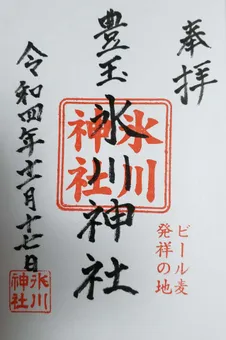 奉拝
豊玉氷川神社
氷川
神社
ビール麦
発祥の地
令和四年十一月十七日
氷川
神社